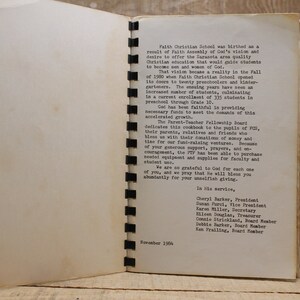 Faith Christian School was birthed as a
result of Faith Assembly of God's vision and
desire to offer the Sarasota area quality
Christian education that would guide students
to become men and women of God.
That vision became a reality in the Fall
of 1980 when Faith Christian School opened
its doors to twenty preschoolers and kinder-
gartners. The ensuing years have seen an
increased number of students, culminating
in a current enrollment of 135 students in
preschool through Grade 10.
God has been faithful in providing
necessary funds to meet the demands of this
accelerated growth.
The Parent-Teacher Fellowship Board
dedicates this cookbook to the pupils of FCS,
their parents, relatives and friends who
bless us with their donations of money and
time for our fund-raising ventures. Because
of your generous support, prayers, and en-
couragement, the PTF has been able to purchase
needed equipment and supplies for faculty and
student use.
We are so grateful to God for each one
of you, and so pray that He will bless you
abundantly for your unselfish giving.
In His service,
Cheryl Barker, President
Susan Purci, Vice President
Karen Miller, Secretary
Eileen Douglas, Treasurer
Connie Strickland, Board Member
Debbie Barker, Board Member
Ken Frailing, Board Member
November 1984